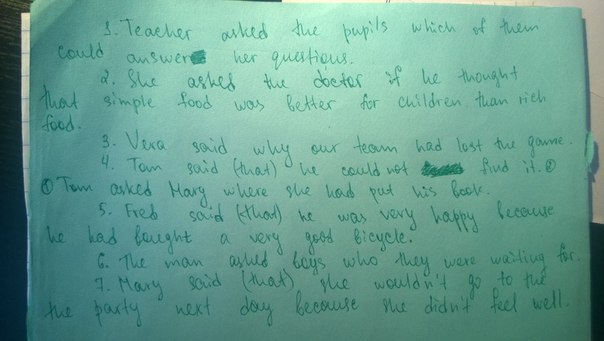 1. Teacher asked the pupils which of them
could answer her questions.
2. She asked the doctor if he thought
that simple food was better for children than rich
food.
3. Vera said why our team had lost the game.
4. Tom said (that) he could not find it. ②
① Tom asked Mary where she had put his book.
5. Fred said (that) he was very happy because
he had bought a very good bicycle.
6. The man asked boys who they were waiting for.
7. Mary said (that) she wouldn't go to the
the party next day because she didn't feel well.